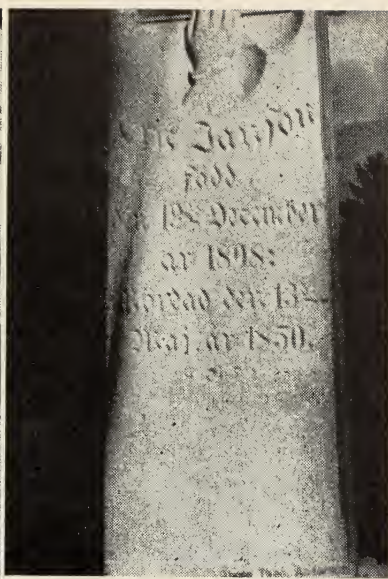 Eric Janson
född
den 19de December
år 1808:
mördad den 13de
Maj, år 1850.